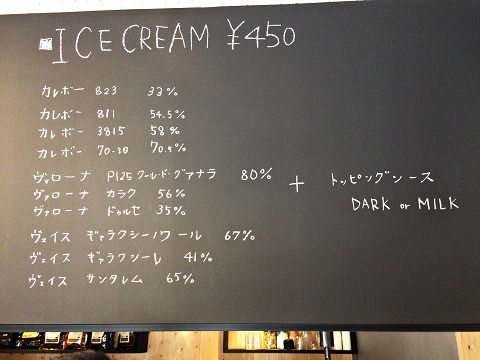 ICE CREAM ¥450
カレボー 823 33%
カレボー 811 54.5%
カレボー 3815 58%
カレボー 70-30 70.5%
ヴァローナ P125 クール・ド・グアナラ 80%
ヴァローナ カラク 56%
ヴァローナ ドゥルセ 35%
ヴェイス ギャラクシーノワール 67%
ヴェイス ギャラクシーレ 41%
ヴェイス サンタレム 65%
+ トッピングソース
DARK or MILK